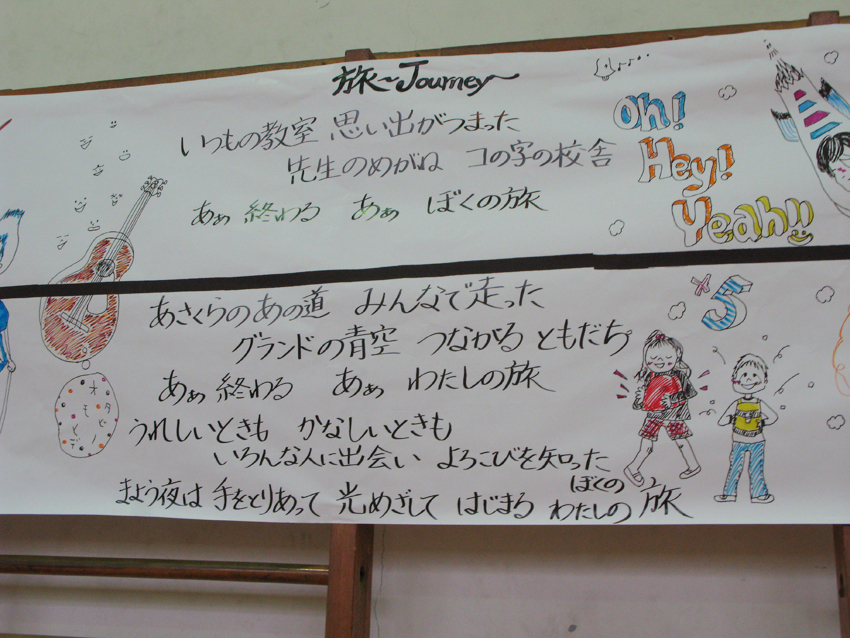 旅〜Journey〜
いつもの教室 思い出がつまった
先生のめがね コの字の校舎
あぁ 終わる あぁ ぼくの旅
Oh!
Hey!
Yeah!!
あさくらのあの道 みんなで走った
グランドの青空 つながる ともだち
あぁ 終わる あぁ わたしの旅
うれしいときも かなしいときも
いろんな人に出会い よろこびを知った
まよう夜は 手をとりあって 光めざして はじまる ぼくの わたしの 旅
*5
オモヒデ